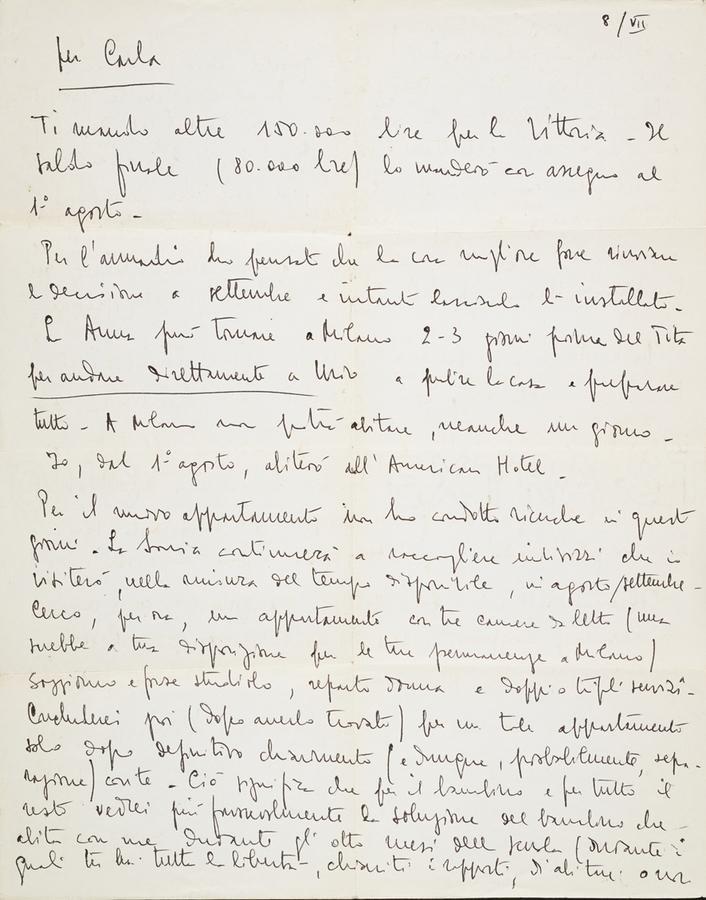 8/VII
per Carla
Ti mando altre 150.000 lire per la Vittoria - Il
saldo finale (80.000 lire) lo manderò con assegno al
1° agosto -
Per l'armadio ho pensato che la cosa migliore fosse rinviare
la decisione a settembre e intanto lasciarlo lì installato.
L'Anna può tornare a Milano 2-3 giorni prima del Tita
per andare direttamente a a pulire la casa e preparare
tutto - A Milano non potrà abitare, neanche un giorno -
Io, dal 1° agosto, abiterò all'American Hotel -
Per il nuovo appartamento non ho condotto ricerche in questi
giorni - La Sonia continuerà a raccogliere indirizzi che io
visiterò, nella misura del tempo disponibile, in agosto/settembre -
Cerco, per ora, un appartamento con tre camere da letto (una
sarebbe a tua disposizione per le tue permanenze a Milano)
soggiorno e forse studiolo, reparto donna e doppi o tripli servizi -
Concluderei poi (dopo averlo trovato) per un tale appartamento
solo dopo definitivo chiarimento (e dunque, probabilmente, sepa-
razione) con te - Ciò significa che per il bambino e per tutto il
resto vedrei più favorevolmente la soluzione del bambino che
abita con me durante gli otto mesi della scuola (durante i
quali tu hai tutta la libertà, chiariti i rapporti, d'abitare o non